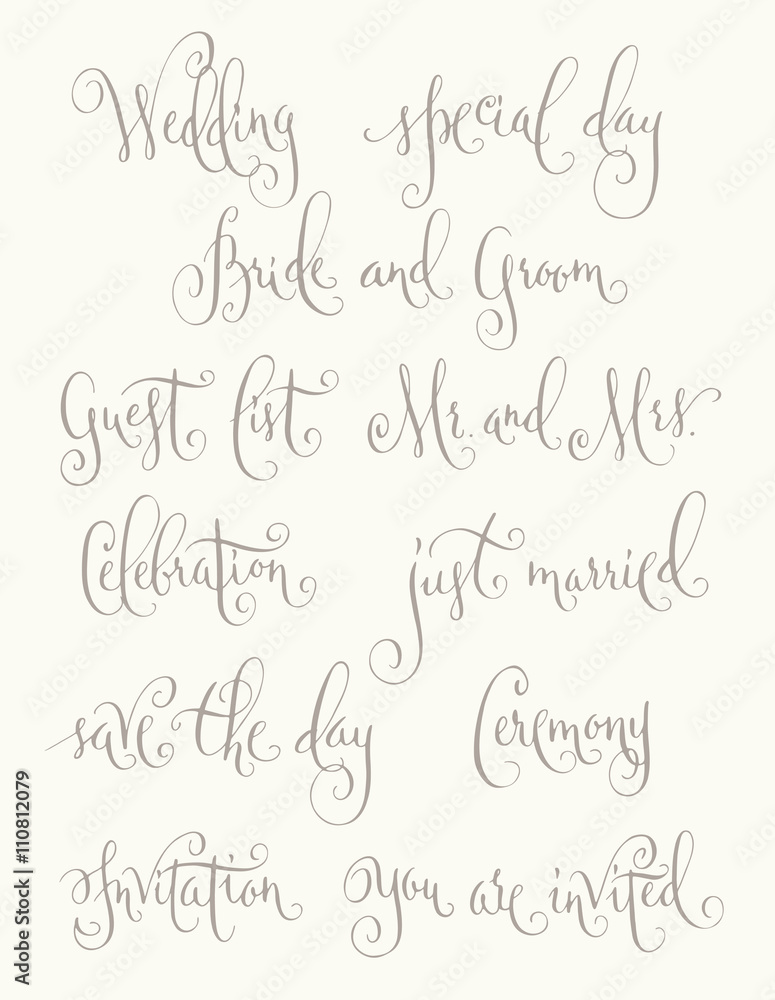 Wedding special day
Bride and Groom
Guest list Mr. and Mrs.
Celebration just married
save the day Ceremony
Invitation You are invited
Adobe Stock | #110812079